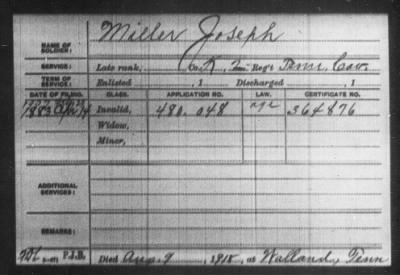 Miller Joseph
NAME OF SOLDIER:
SERVICE: Late rank, Co. K, 2 Reg't Tenn. Cav.
TERM OF SERVICE: Enlisted , 1 Discharged , 1
DATE OF FILING. CLASS. APPLICATION NO. LAW. CERTIFICATE NO.
1883 Apr 14 Invalid, 480.048 age 364876
Widow,
Minor,
ADDITIONAL SERVICES:
REMARKS:
P.J.B. Died Aug. 9, 1915, at Walland, Tenn